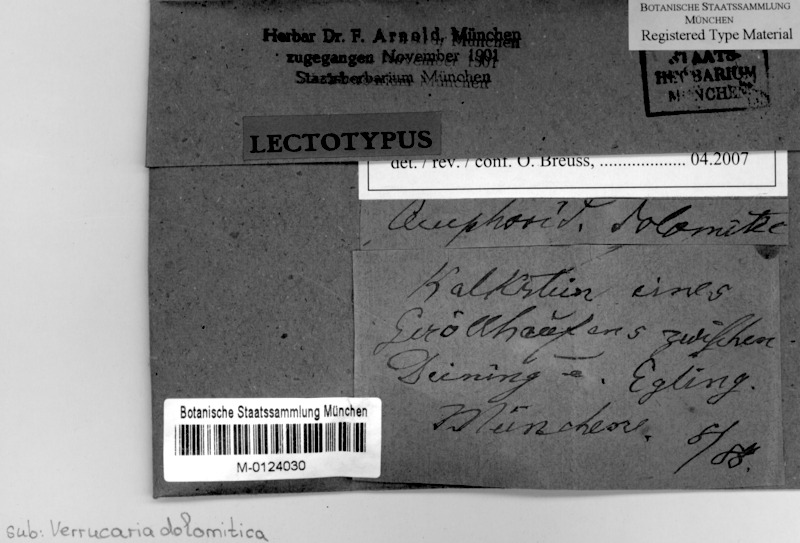 BOTANISCHE STAATSSAMMLUNG
MÜNCHEN
Registered Type Material
Herbar Dr. F. Arnold, München
zugegangen November 1901
Staatsherbarium München
STAATS
HERBARIUM
MÜNCHEN
LECTOTYPUS
det. / rev. / conf. O. Breuss, ................... 04.2007
Amphorid. dolomitic
Kalkstein eines
Geröllhaufens zwischen
Deining u. Egling.
München. 8/88.
Botanische Staatssammlung München
M-0124030
sub: Verrucaria dolomitica